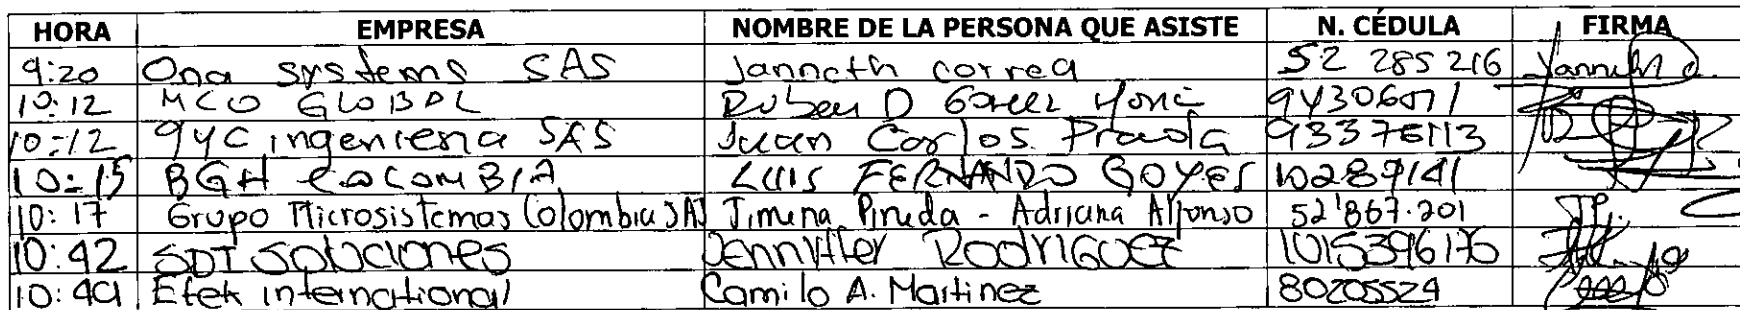 HORA EMPRESA NOMBRE DE LA PERSONA QUE ASISTE N. CÉDULA FIRMA
9:20 Ona systems SAS Janneth correa 52 285 216
10:12 MCO GLOBAL Ruben D 94306071
10:12 GYC ingenieria SAS Juan Carlos Prada 93376113
10:15 BGH COLOMBIA LUIS FERNANDO GOYES 10289141
10:17 Grupo Microsistemas Colombia SAS Jimena Pineda - Adriana Alfonso 52'867.201
10:42 SDT Soluciones Jenniffer RODRIGUEZ 1015396176
10:49 Etek international Camilo A. Martinez 80205524